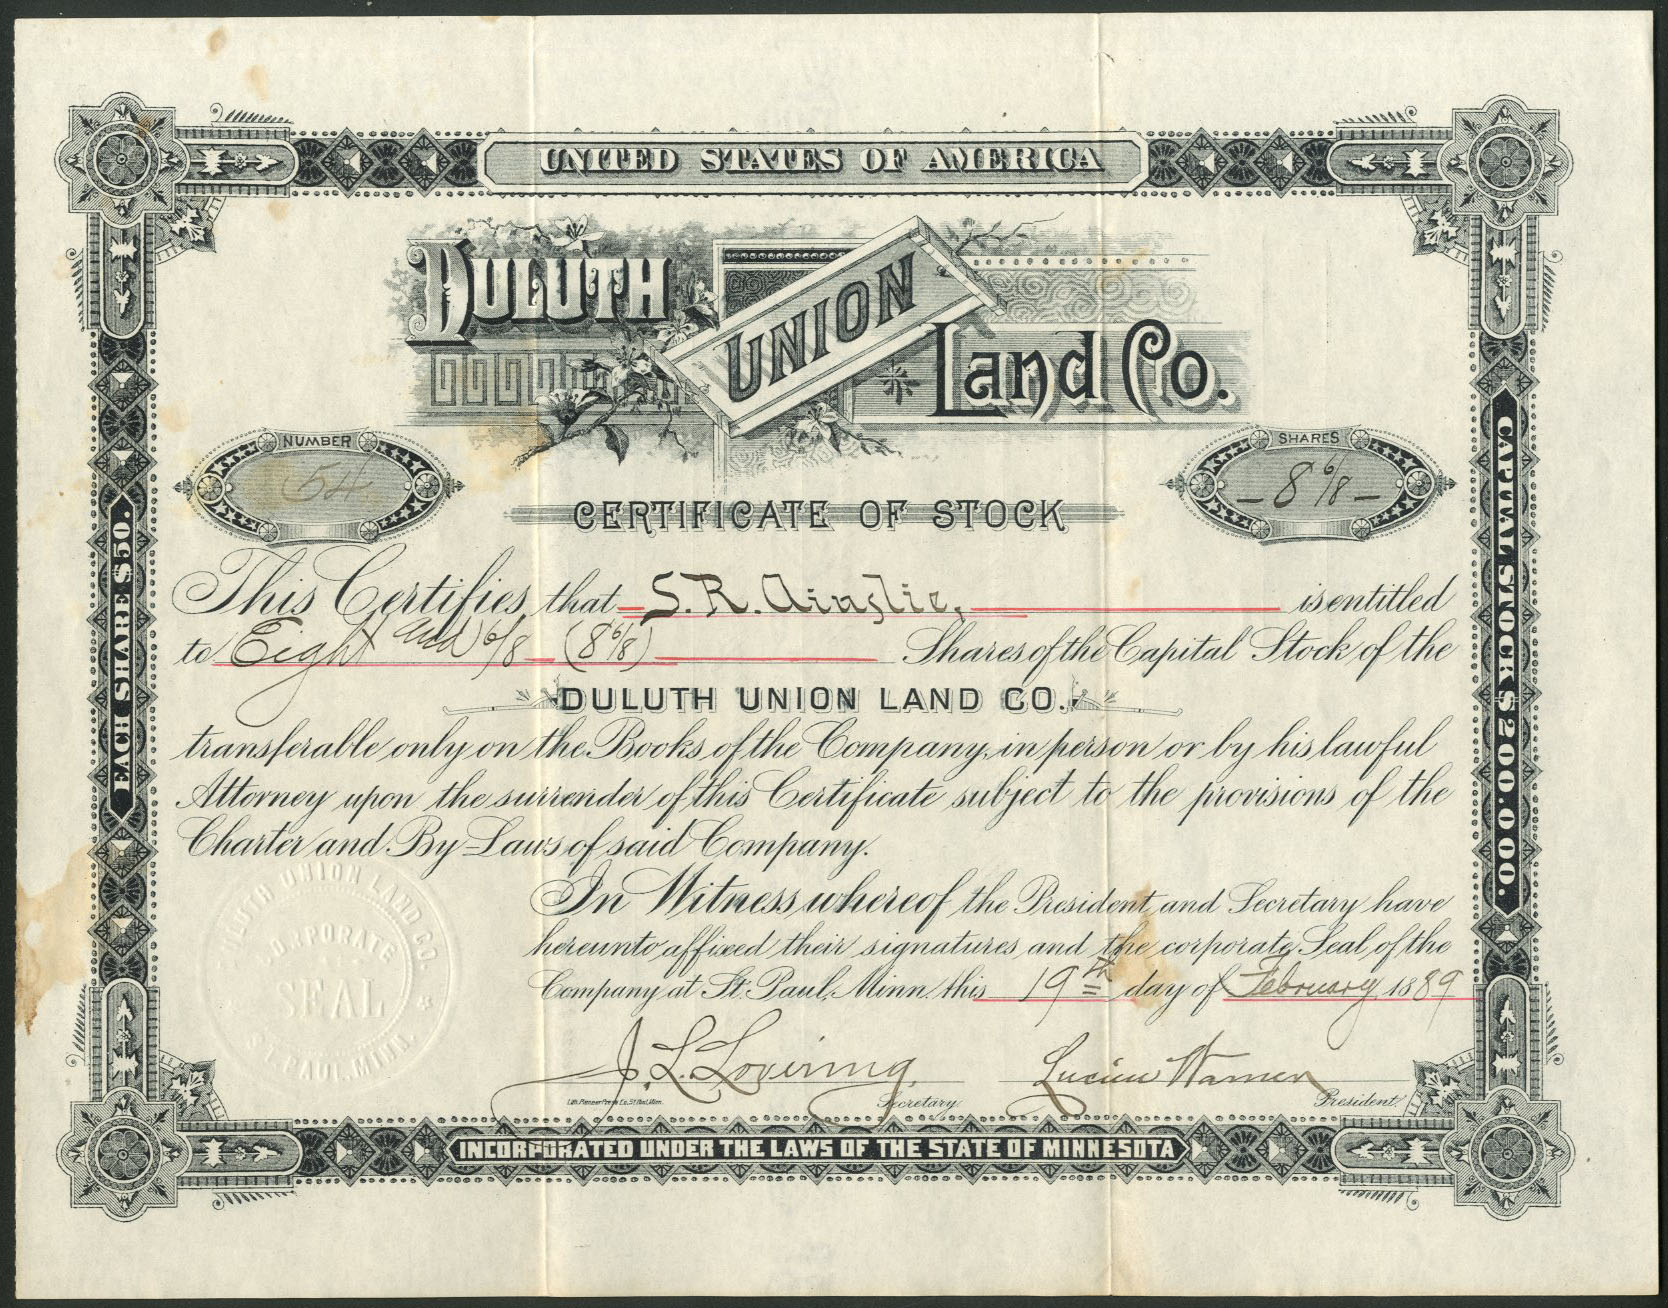 UNITED STATES OF AMERICA
DULUTH UNION Land Co.
NUMBER
54
SHARES
8 6/8
CERTIFICATE OF STOCK
This Certifies that S. R. Ainslie, is entitled
to Eight and 6/8 (8 6/8) Shares of the Capital Stock of the
DULUTH UNION LAND CO.
transferable only on the Books of the Company, in person or by his lawful
Attorney upon the surrender of this Certificate subject to the provisions of the
Charter and By Laws of said Company.
In Witness whereof the President and Secretary have
hereunto affixed their signatures and the corporate Seal of the
Company at St. Paul, Minn. this 19th day of February 1889
J. L. Lovering Lucien Warner
Secretary. President.
Lith. Pioneer Press Co. St. Paul, Minn.
INCORPORATED UNDER THE LAWS OF THE STATE OF MINNESOTA
EACH SHARE $50.
CAPITAL STOCK $200.000.
DULUTH UNION LAND CO.
CORPORATE
SEAL
ST. PAUL, MINN.